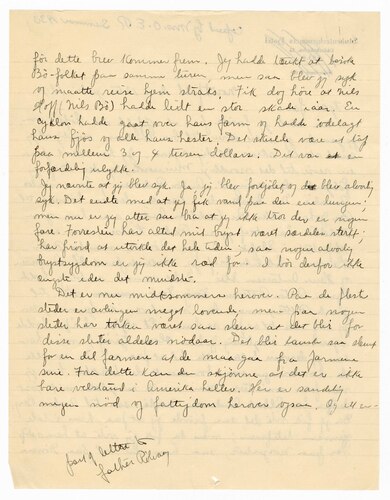 før dette brev kommer frem. Jeg hadde tænkt at besøk
Bø-folket paa samme turen, men saa blev jeg syk
og maatte reise hjem straks. Fik dog høre at Nils
(Nils Bø) hadde lidt en stor skade iaar. En
cyklon hadde gaat over hans farm og hadde ødelagt
hans fjøs og alle hans hester. Det skulde være et tap
paa mellem 3 og 4 tusen dollars. Det var en
forfærdelig ulykke.
Jeg nævnte at jeg blev syk. Ja, jeg blev forkjølet og blev alvorlig
syk. Det endte med at jeg fik vand paa den ene lungen;
men nu er jeg atter saa bra at jeg ikke tror der er nogen
fare. Forresten har altid mit bryst været særdeles sterkt,
har prøvd at utvikle det hele tiden; saa nogen alvorlig
brystsygdom er jeg ikke ræd for. I bør derfor ikke
engste eder det mindste.
Det er nu midtsommers herover. Paa de fleste
steder er avlingen meget lovende men paa nogen
steder har tørken været saa slem at det blir for
disse steder aldeles nødaar. Det blir kanske saa slemt
for en del farmere at de maa gaa fra farmene
sine. Fra dette kan du skjønne at det er ikke
bare velstand i Amerika heller. Her er sandelig
megen nød og fattigdom herover ogsaa. Og ett er-
part of letter to
father